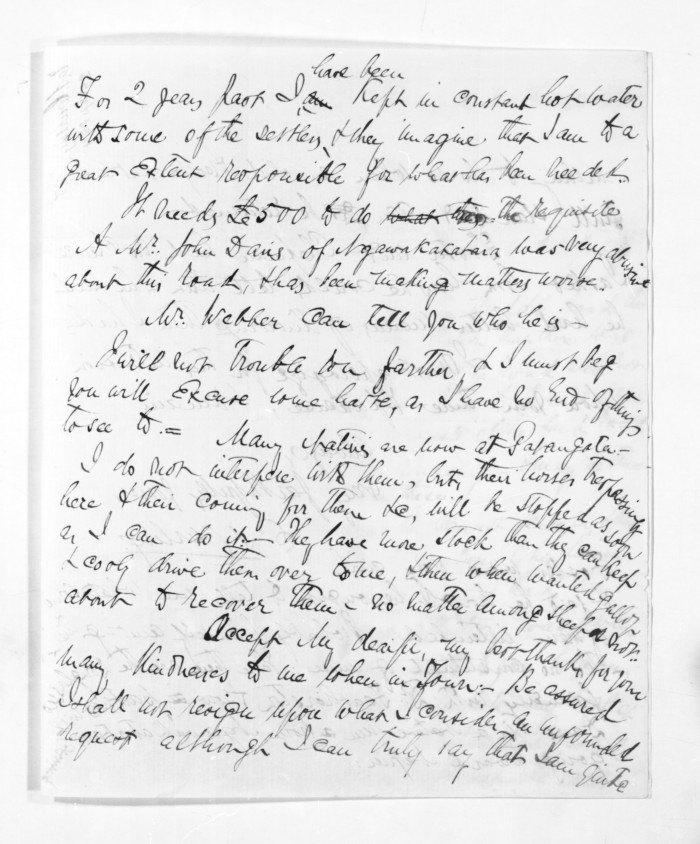 have been
For 2 years past I am kept in constant hot water
with some of the settlers & they imagine that I am to a
great extent responsible for what has been needed.
It needs £500 to do what they the requisite
A Mr. John Davis of Ngawakakatara was very abusive
about this road, & has been making matters worse.
Mr. Webber can tell you who he is —
I will not trouble you farther, & I must beg
you will Excuse some haste, as I have no End of things
to see to. = Many Natives are now at Patangata —
I do not interfere with them, but, their horses trespassing
here, & their coming for them &c, will be stopped as soon
as I can do it — They have more stock than they can keep
& cooly drive them over to me, & then when wanted gallop
about to recover them — no matter among sheep or not.
Accept My dear Sir, my best thanks for your
many Kindnesses to me when in Town — Be assured
I shall not resign upon what I consider an unfounded
request although I can truly say that I am quite